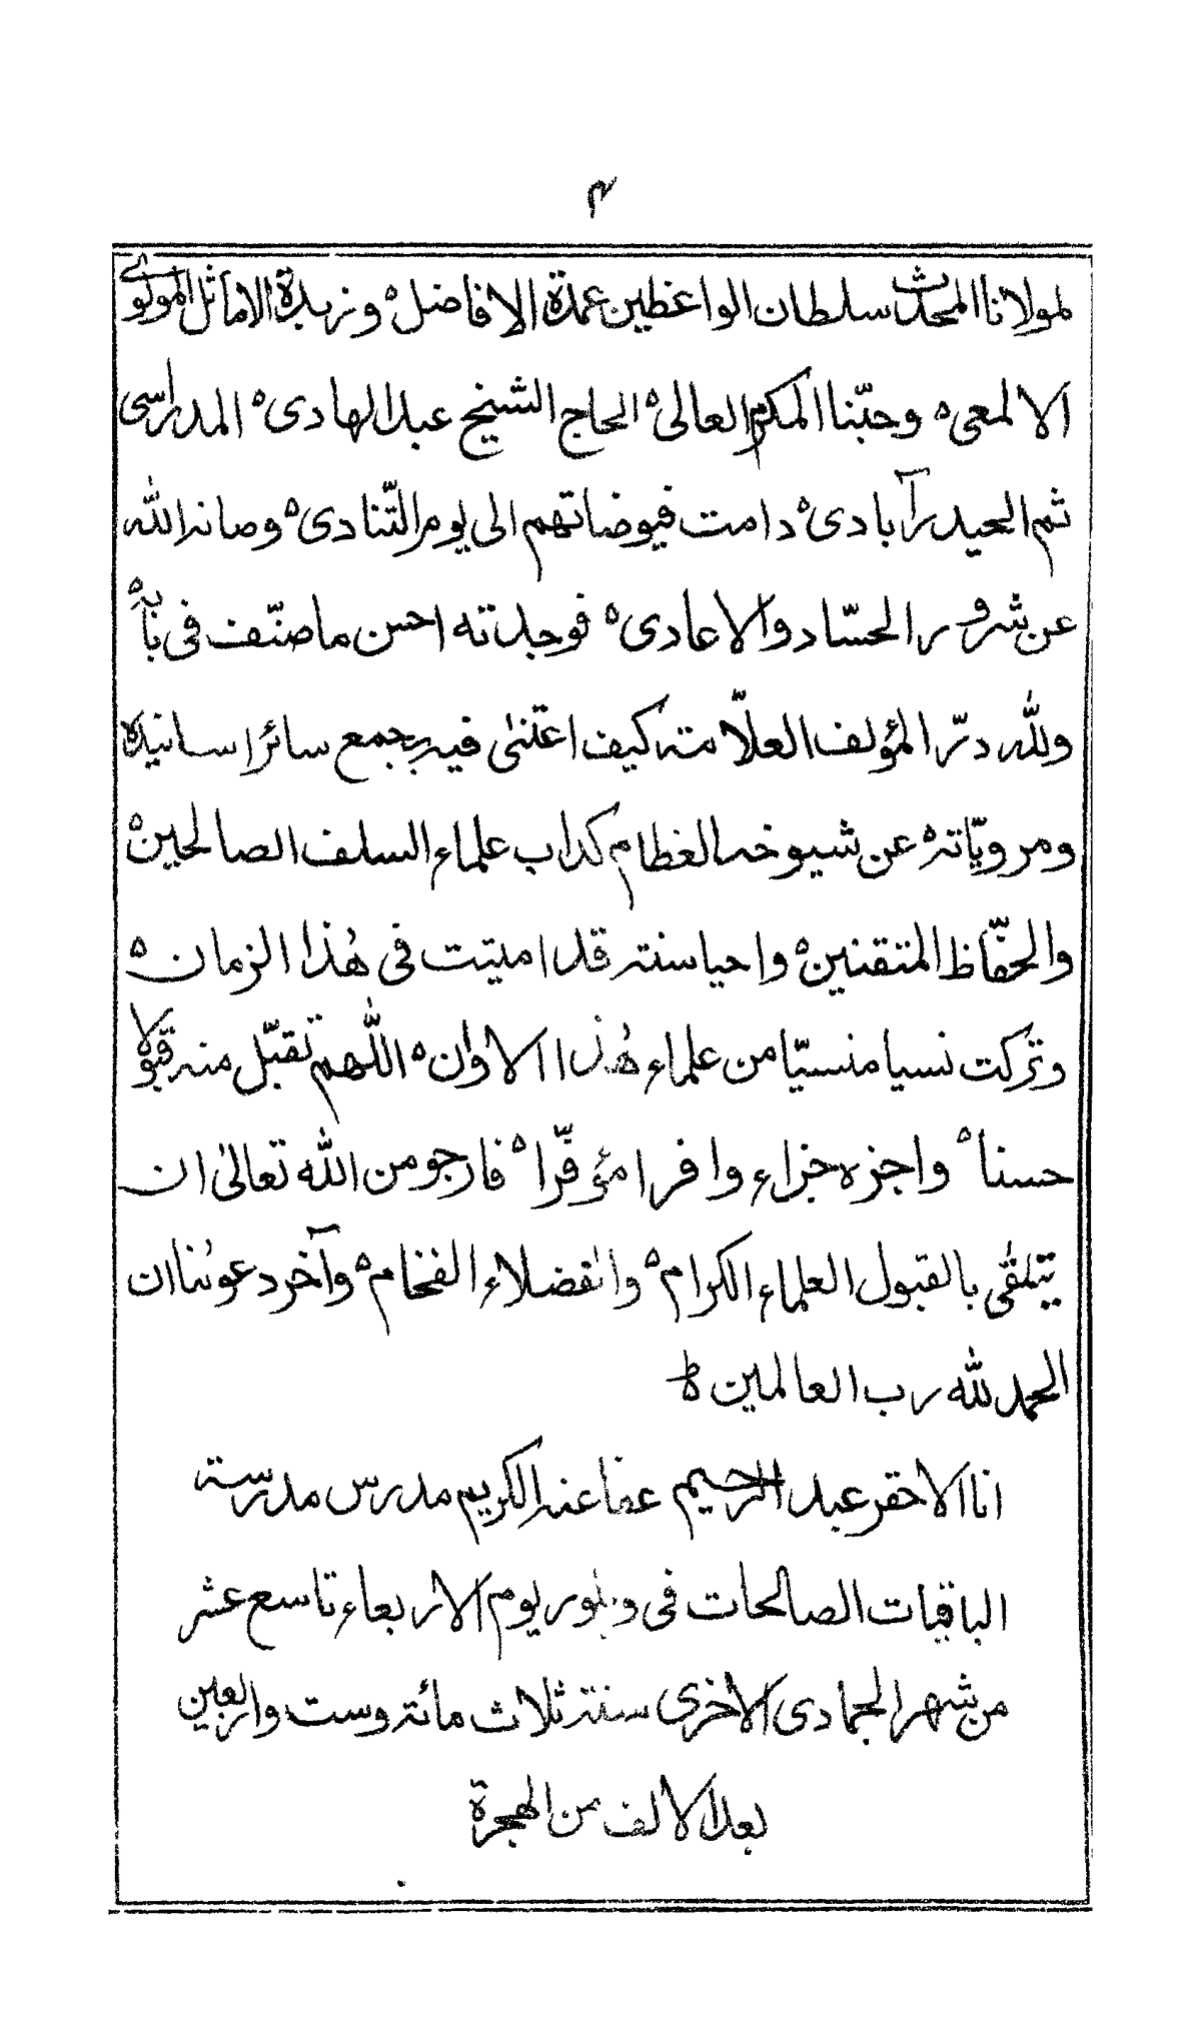 ۴
لمولانا المحدث سلطان الواعظين عمدة الافاضل ه وزبدة الاماثل المولوي
الالمعی ه وحبّنا المکرم العالی ه الحاج الشیخ عبد الهادی ه المدراسی
ثم الحیدرآبادی ه دامت فیوضاتهم الی یوم التّنادی ه وصانه الله
عن شرور الحسّاد والاعادی ه فوجدته احسن ما صنّف فی بابه ه
ولله درّ المؤلف العلّامة کیف اعتنیٰ فیه بجمع سائر اسانیده
ومرویّاته ه عن شیوخه العظام کداب علماء السلف الصالحین ه
والحفّاظ المتقنین ه واحیا سنة قد امیتت فی هٰذا الزمان ه
وترکت نسیا منسیّا من علماء هٰذا الاوان ه اللّٰهم تقبّل منه قبولا
حسنا ه واجزه جزاء وافرا مؤفّرا ه فارجو من الله تعالیٰ ان
یتلقی بالقبول العلماء الکرام ه والفضلاء الفخام ه وآخر دعوٰنا ان
الحمد لله رب العالمین ه ط
انا الاحقر عبد الرحیم عفا عنه الکریم مدرس مدرسة
الباقیات الصالحات فی ویلور یوم الاربعاء تاسع عشر
من شهر الجمادی الاخری سنة ثلاث مائة وست واربعین
بعد الالف من الهجرة